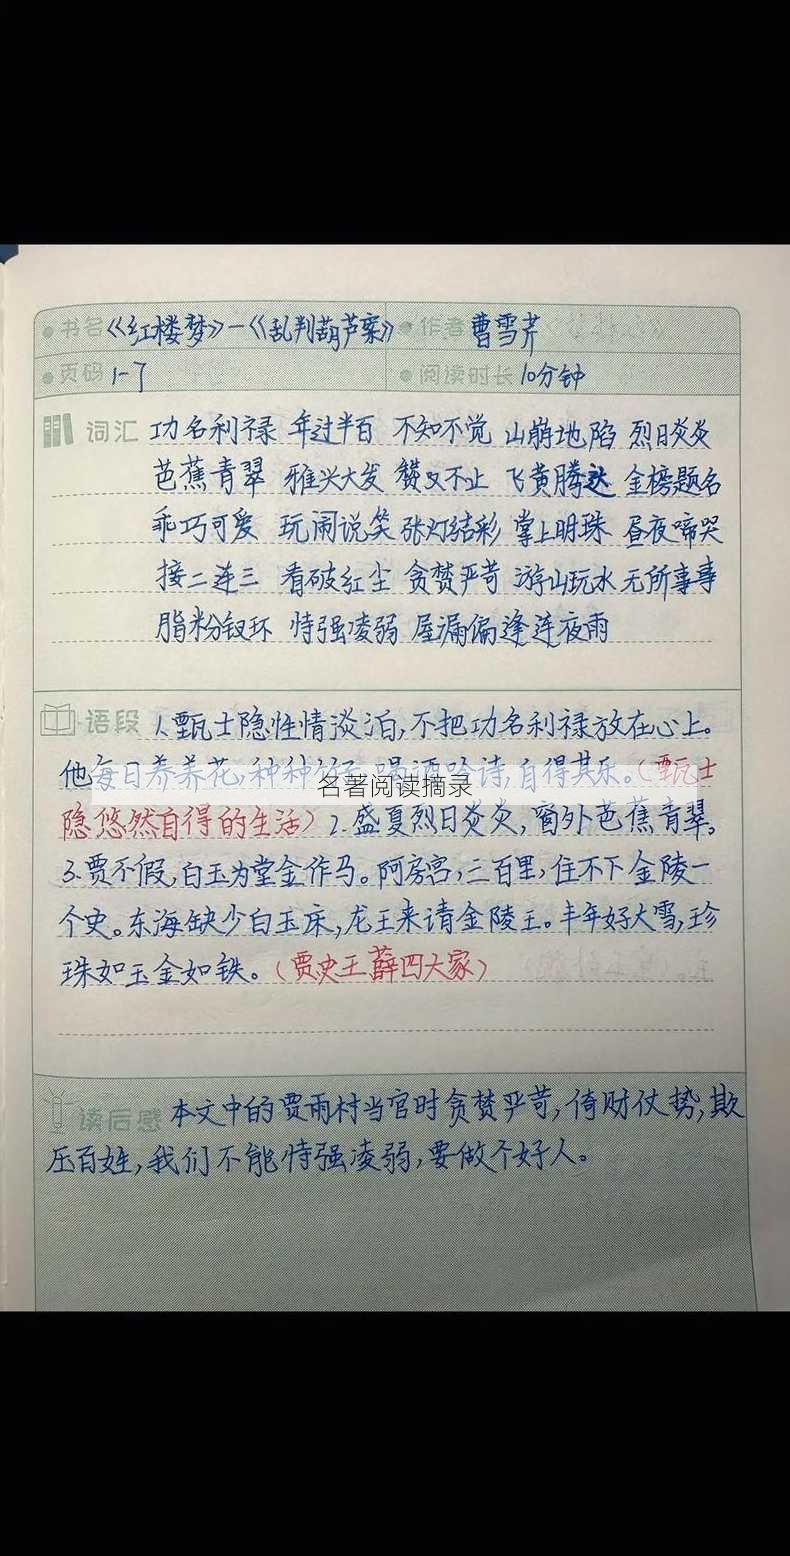 书名《红楼梦》—《乱判葫芦案》 作者 曹雪芹
页码 1-7 阅读时长 10分钟
词汇 功名利禄 年过半百 不知不觉 山崩地陷 烈日炎炎
芭蕉青翠 雅兴大发 赞叹不止 飞黄腾达 金榜题名
乖巧可爱 玩闹说笑 张灯结彩 掌上明珠 昼夜啼哭
接二连三 看破红尘 贪婪严苛 游山玩水 无所事事
脂粉钗环 恃强凌弱 屋漏偏逢连夜雨
语段 1.甄士隐性情淡泊,不把功名利禄放在心上。
他每日养养花,种种竹子,喝酒吟诗,自得其乐。(甄士
名著阅读摘录
隐悠然自得的生活) 2.盛夏烈日炎炎,窗外芭蕉青翠。
3.贾不假,白玉为堂金作马。阿房宫,三百里,住不下金陵一
个史。东海缺少白玉床,龙王来请金陵王。丰年好大雪,珍
珠如玉金如铁。(贾史王薛四大家)
读后感 本文中的贾雨村当官时贪婪严苛,倚财仗势,欺
压百姓,我们不能恃强凌弱,要做个好人。